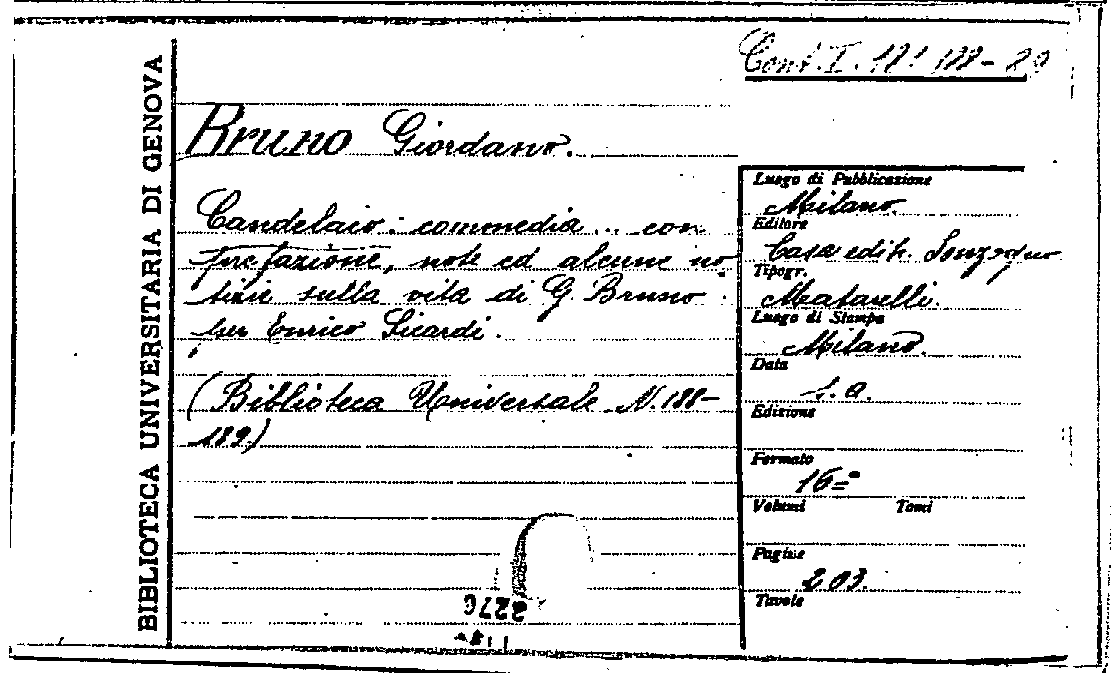 Conf. I. 18! 188-89
BIBLIOTECA UNIVERSITARIA DI GENOVA
Bruno Giordano.
Candelaio: commedia... con
prefazione, note ed alcune no
tizie sulla vita di G. Bruno
per Enrico Sicardi.
(Biblioteca Universale N. 188-
189)
Luogo di Pubblicazione
Milano.
Editore
Casa edit. Sonzogno
Tipogr.
Matarelli.
Luogo di Stampa
Milano.
Data
s.a.
Edizione
Formato
16=°
Volumi Tomi
Pagine
203.
Tavole
2276